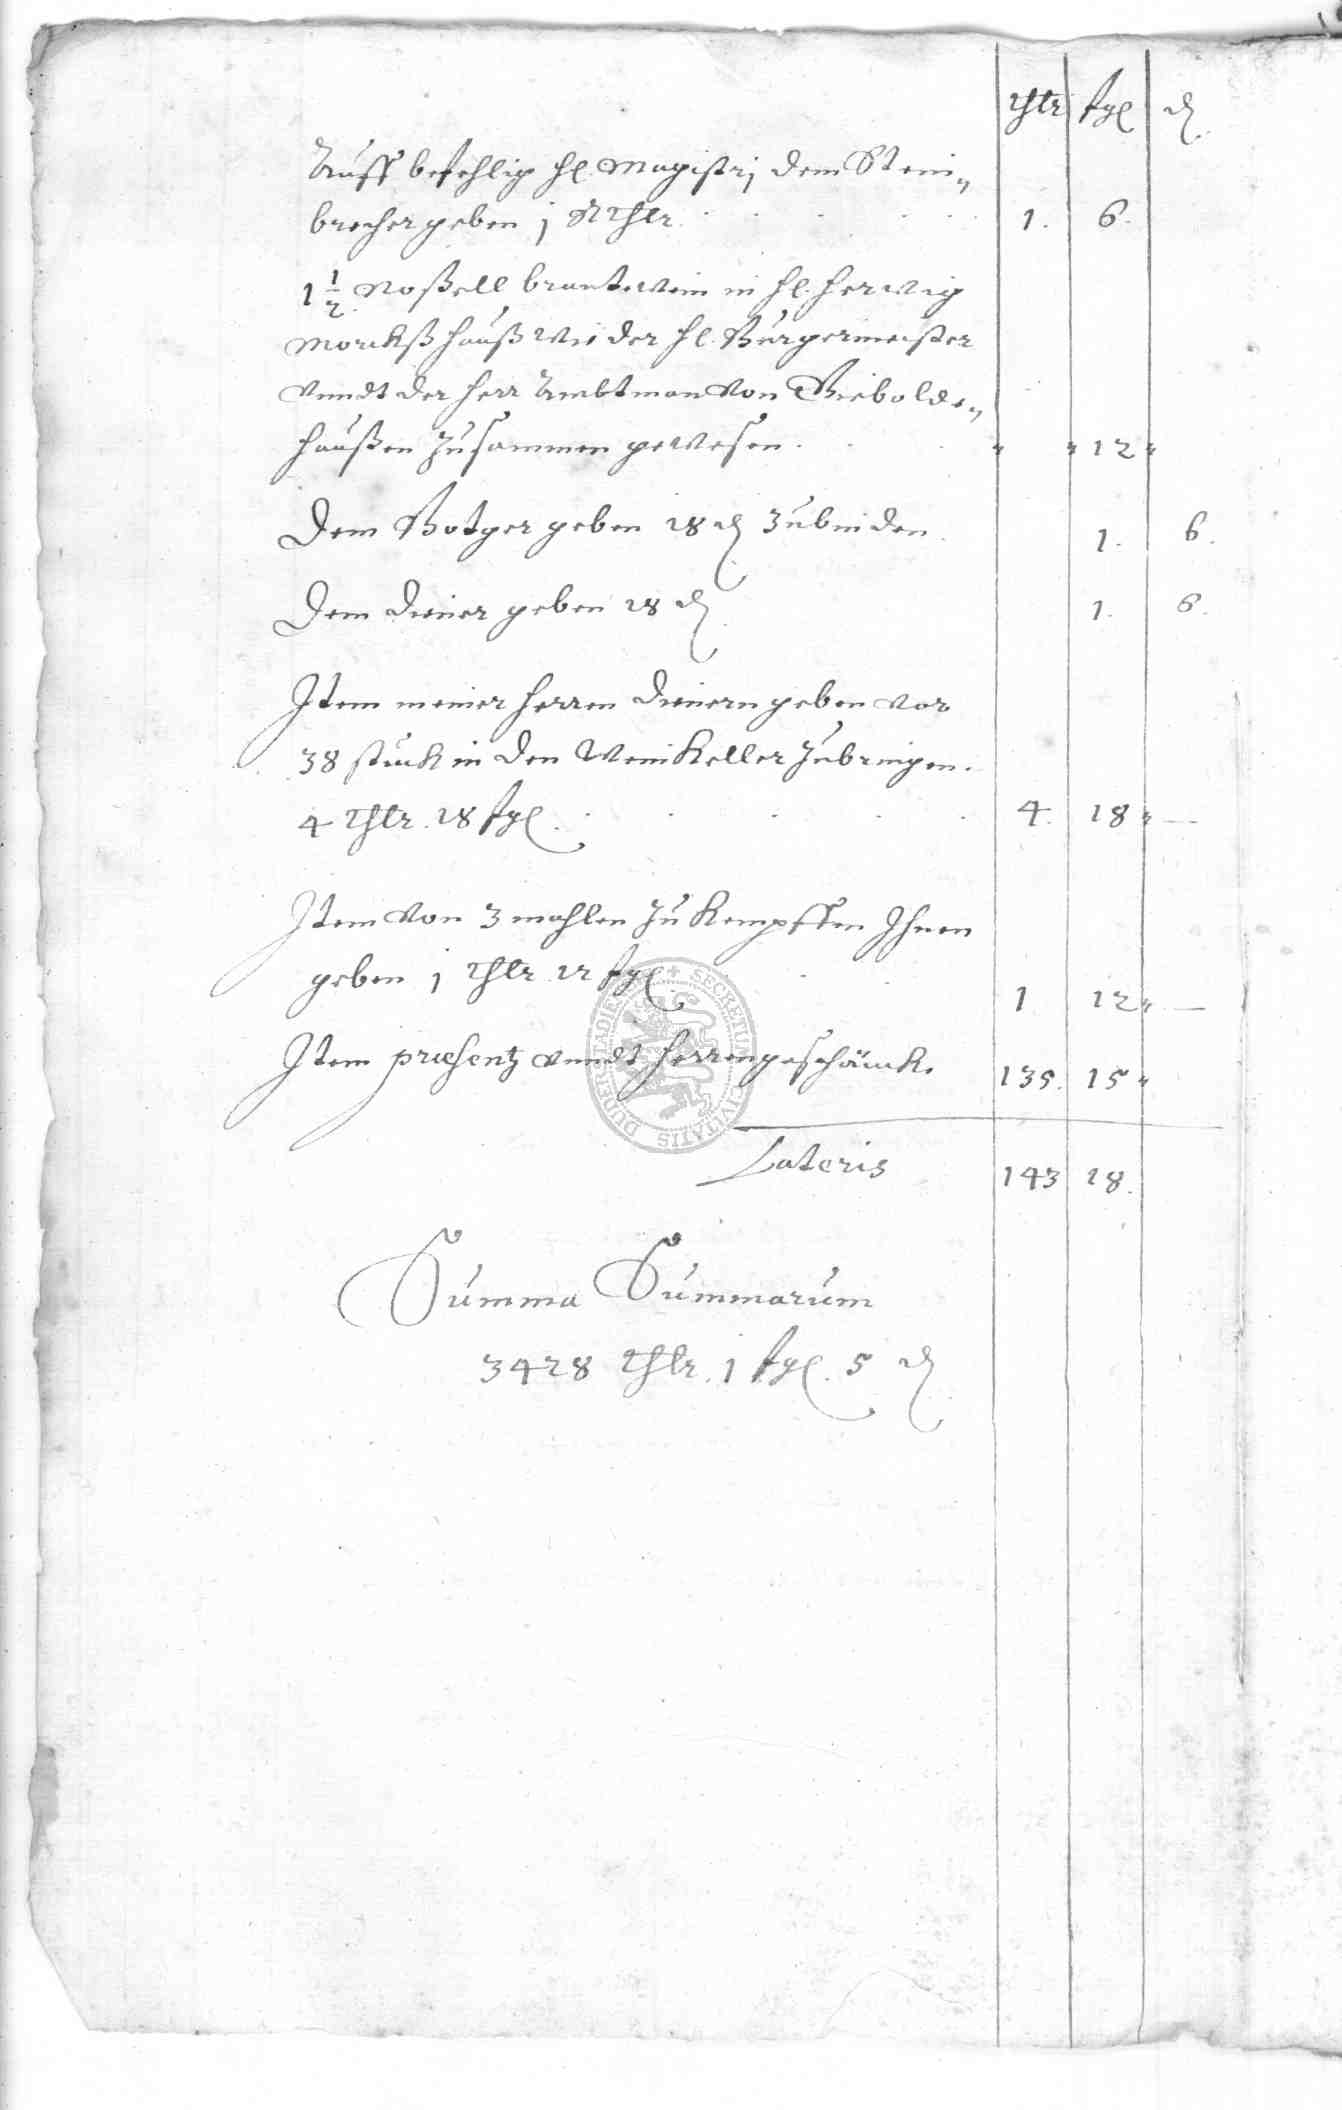 thlr fgl ₰
Auff befehlig hl. Magistrj dem Stein„
brecher geben j Rthlr. 1. 6.
1 1/2 Noßell brantewein in hl. Herwig
Morckß hauß wie der hl. Bürgermeister
vnndt der herr Ambtman von Giebolde„
haußen zusammen gewesen. " " 12 "
Dem Botger geben 18 ₰ zubinden. 1. 6.
Dem diener geben 18 ₰ 1. 6.
Item meiner herren dienern geben vor
38 stuck in den Weinkeller zubringen.
4 thlr. 18 fgl. 4. 18 " —
Item von 3 mahlen zu Kempffen Ihnen
geben j thlr. 12 fgl. 1 12 " —
Item præsentz vnndt herrengeschänck. 135. 15 "
Lateris 143 18.
Summa Summarum
3428 thlr. 1 fgl. 5 ₰
SECRETUM CIVITATIS DUDERSTADIENSIS